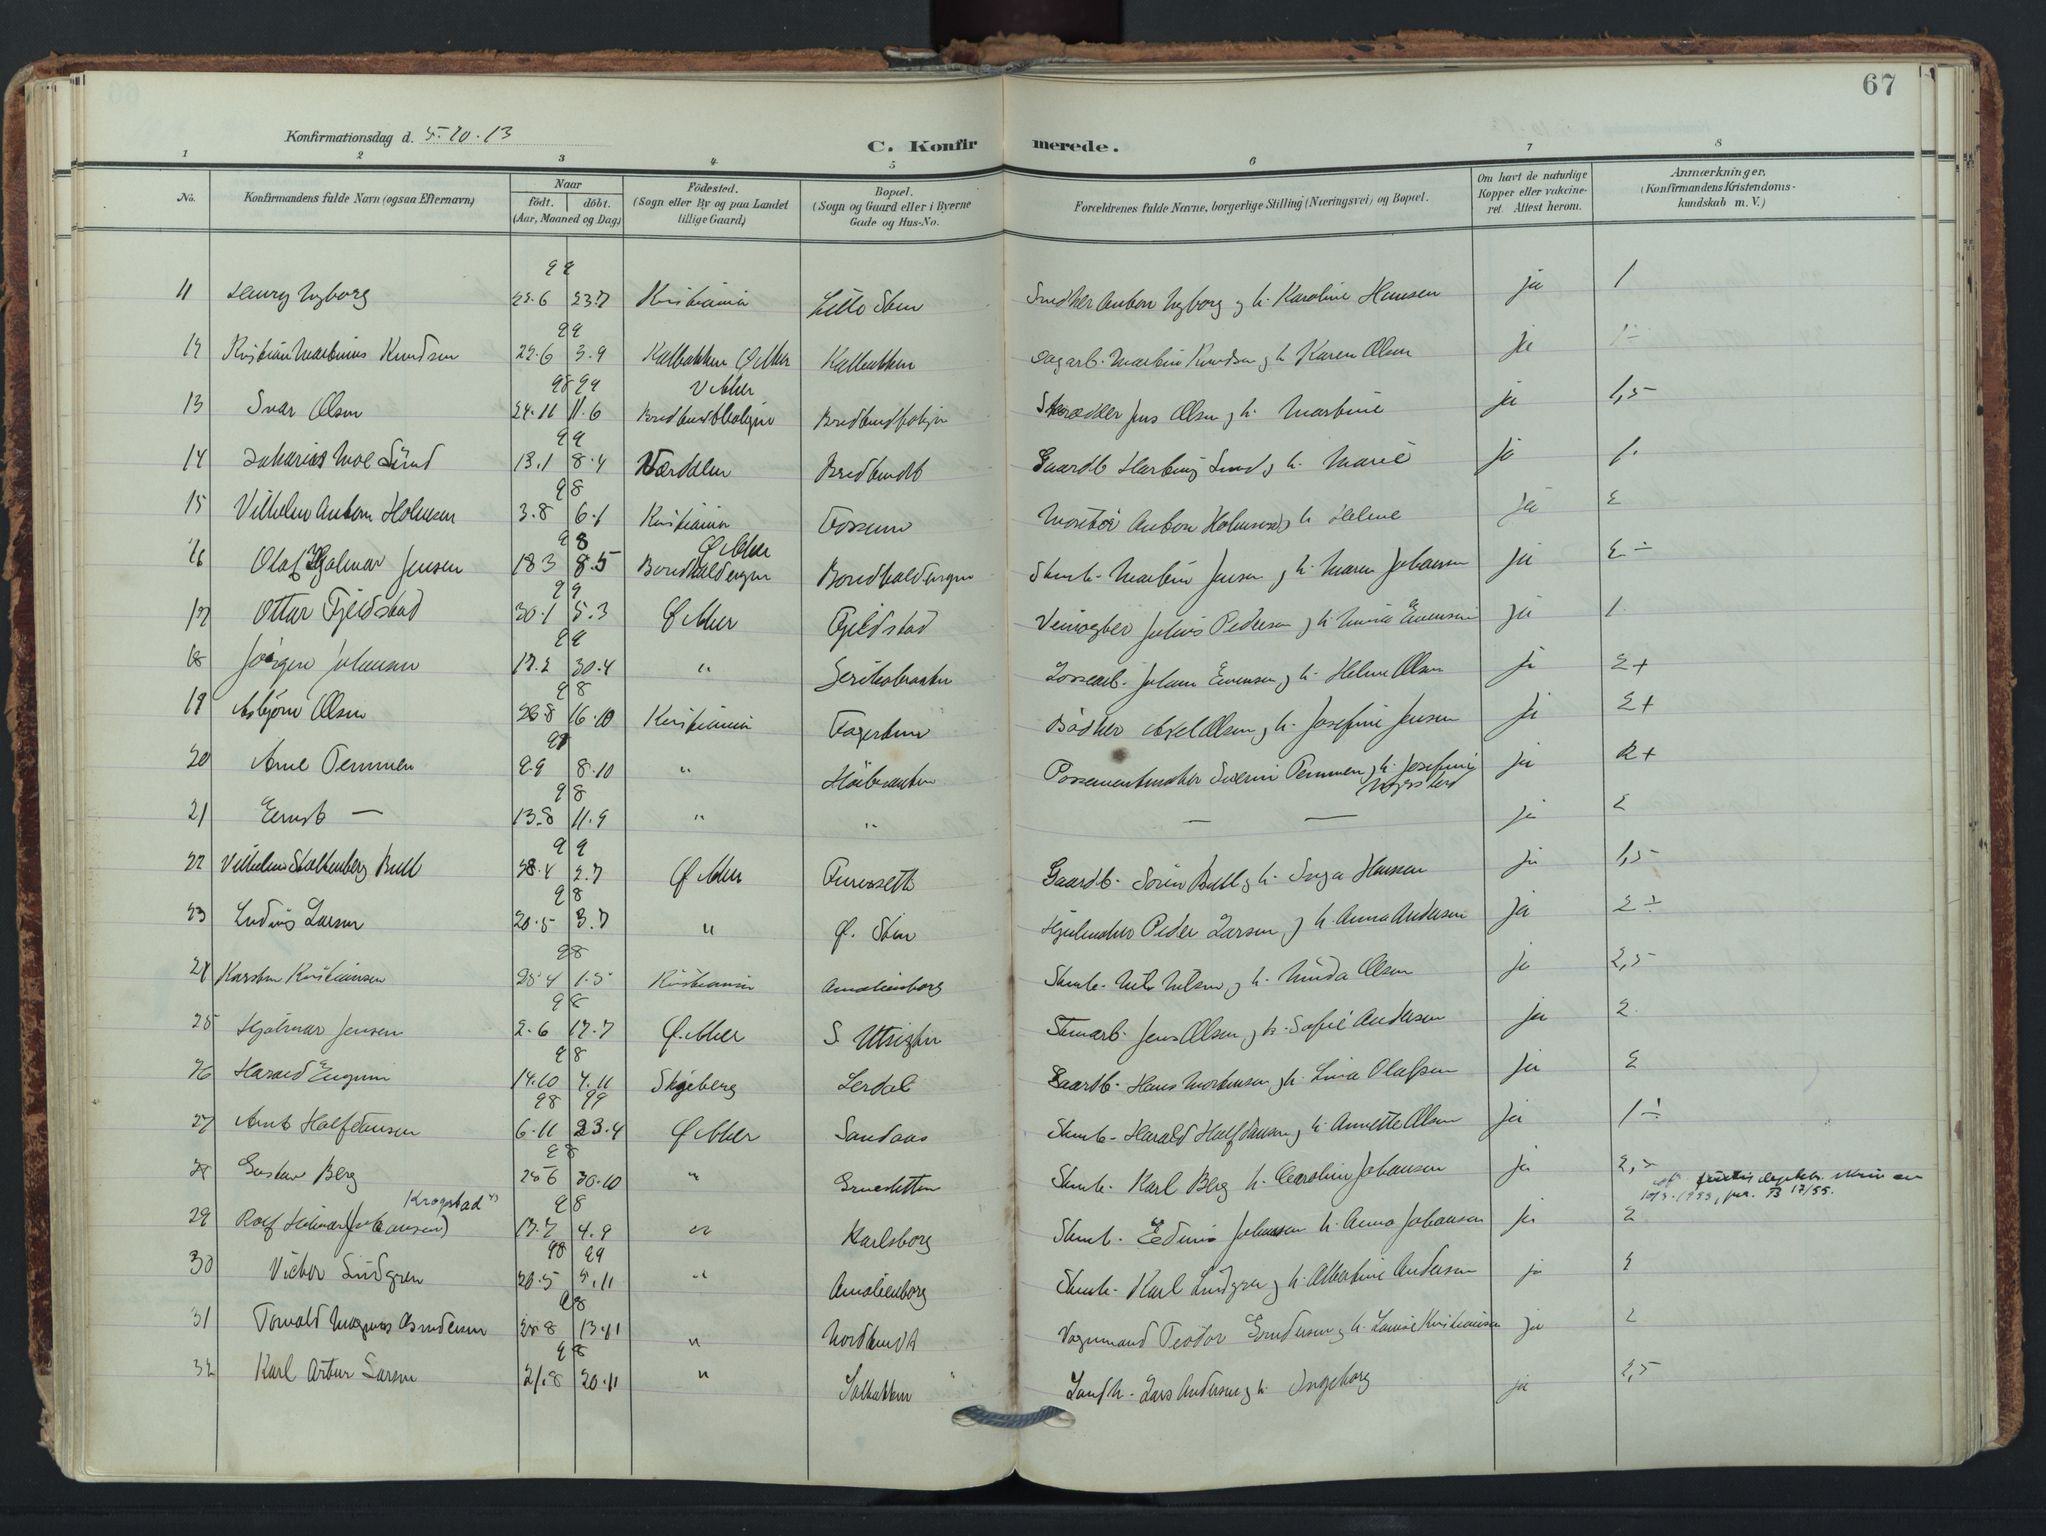 67
Konfirmationsdag d. 5.10.13
C. Konfirmerede.
1 2 3 4 5 6 7 8
No. Konfirmandens fulde Navn (ogsaa Efternavn) Naar født. døbt. (Aar, Maaned og Dag) Fødested. (Sogn eller By og paa Landet tillige Gaard) Bopæl. (Sogn og Gaard eller i Byerne Gade og Hus-No. Forældrenes fulde Navne, borgerlige Stilling (Næringsvei) og Bopæl. Om havt de naturlige Kopper eller vakcineret. Attest herom. Anmærkninger. (Konfirmandens Kristendomskundskab m. V.)
99
11 Henry Nyborg 22.6 23.7 Kristiania Lille Sten Snedker Anton Nyborg og h. Karoline Hansen ja 1
99
12 Kristian Martinius Knudsen 22.6 3.9 Kalbakken Ø. Aker Kalbakken Dagarb. Martin Knudsen og h. Karen Olsen ja 1-
98 99 V Aker
13 Ivar Olsen 24.11 11.6 Bredtvedt Skrædder Jens Olsen og h. Martine ja 1,5
99
14 Zakarias Moe Sund 13.1 8.4 Værdalen Bredtvedt Gaardb. Sund og h. Marie ja 1.
98
15 Vilhelm Anton Holmsen 3.8 6.1 Kristiania Fossum Montør Anton Holmsen og h. Helene ja 2
98 Ø Aker
16 Olaf Hjalmar Jensen 18.3 8.5 Stenh. Martin Jensen og h. Maren Johansen ja 2 ÷
99
17 Ottar Fjeldstad 30.1 5.3 Ø Aker Fjeldstad Veivogter Julius Pedersen og h. Evensen ja 1.
99
18 Jørgen Johansen 17.2 30.4 " Jerikobakken Johan Evensen og h. Helene Olsen ja 2+
98
19 Asbjørn Olsen 26.8 16.10 Kristiania Fagertun Bødker Axel Olsen og h. Josefine Jensen ja 2+
98
20 Arne Temmen 9.9 8.10 " Høibraaten Possementmaker Temmen og h. Josefine ja 2+
98
21 Ernst — 13.8 11.9 " " — — ja 2
99
22 Vilhelm Stoltenberg Bull 28.4 2.7 Ø Aker Furuseth Gaardb. Søren Bull og h. Inga Hansen ja 1,5
98
23 Ludvig Larsen 20.5 3.7 " Ø. Sten Hjulmaker Peder Larsen og h. Anna Andersen ja 2 ÷
98
24 Karsten Kristiansen 25.4 1.5 Kristiania Amalienborg Stenh. Nils Nilsen og h. Olsen ja 2,5
98
25 Hjalmar Jensen 2.6 17.7 Ø. Aker S. Utsigten Stenarb. Jens Olsen og h. Sofie Andersen ja 2
98
26 Harald Engum 14.10 4.11 Skjeberg Lerdal Gaardb. Hans Mortensen og h. Lina Olafsen ja 2
98 99
27 Arnt Halfdansen 6.11 23.4 Ø Aker Sandaas Stenh. Harald Halfdansen og h. Annette Olsen ja 1 ÷
98
28 Gustav Berg 25.6 30.10 " Stenh. Karl Berg h. Caroline Johansen ja 2,5
Krogstad
98
29 Rolf Hilmar (Johansen) 17.7 4.9 " Karlsborg Stenh. Edvin Johansen h. Anna Johansen ja 2
98 99
30 Victor Lindgren 20.5 5.11 " Amalienborg Stenh. Karl Lindgren og h. Albertine Andersen ja 2
98
31 Torvald Magnus 25.8 13.11 " Nordtvedt Vognmand Teodor og h. Louise Kristiansen ja 2
98
32 Karl Artur Larsen 21.8 20.11 " Solbakken Landh. Lars Andersen og h. Ingeborg ja 2,5